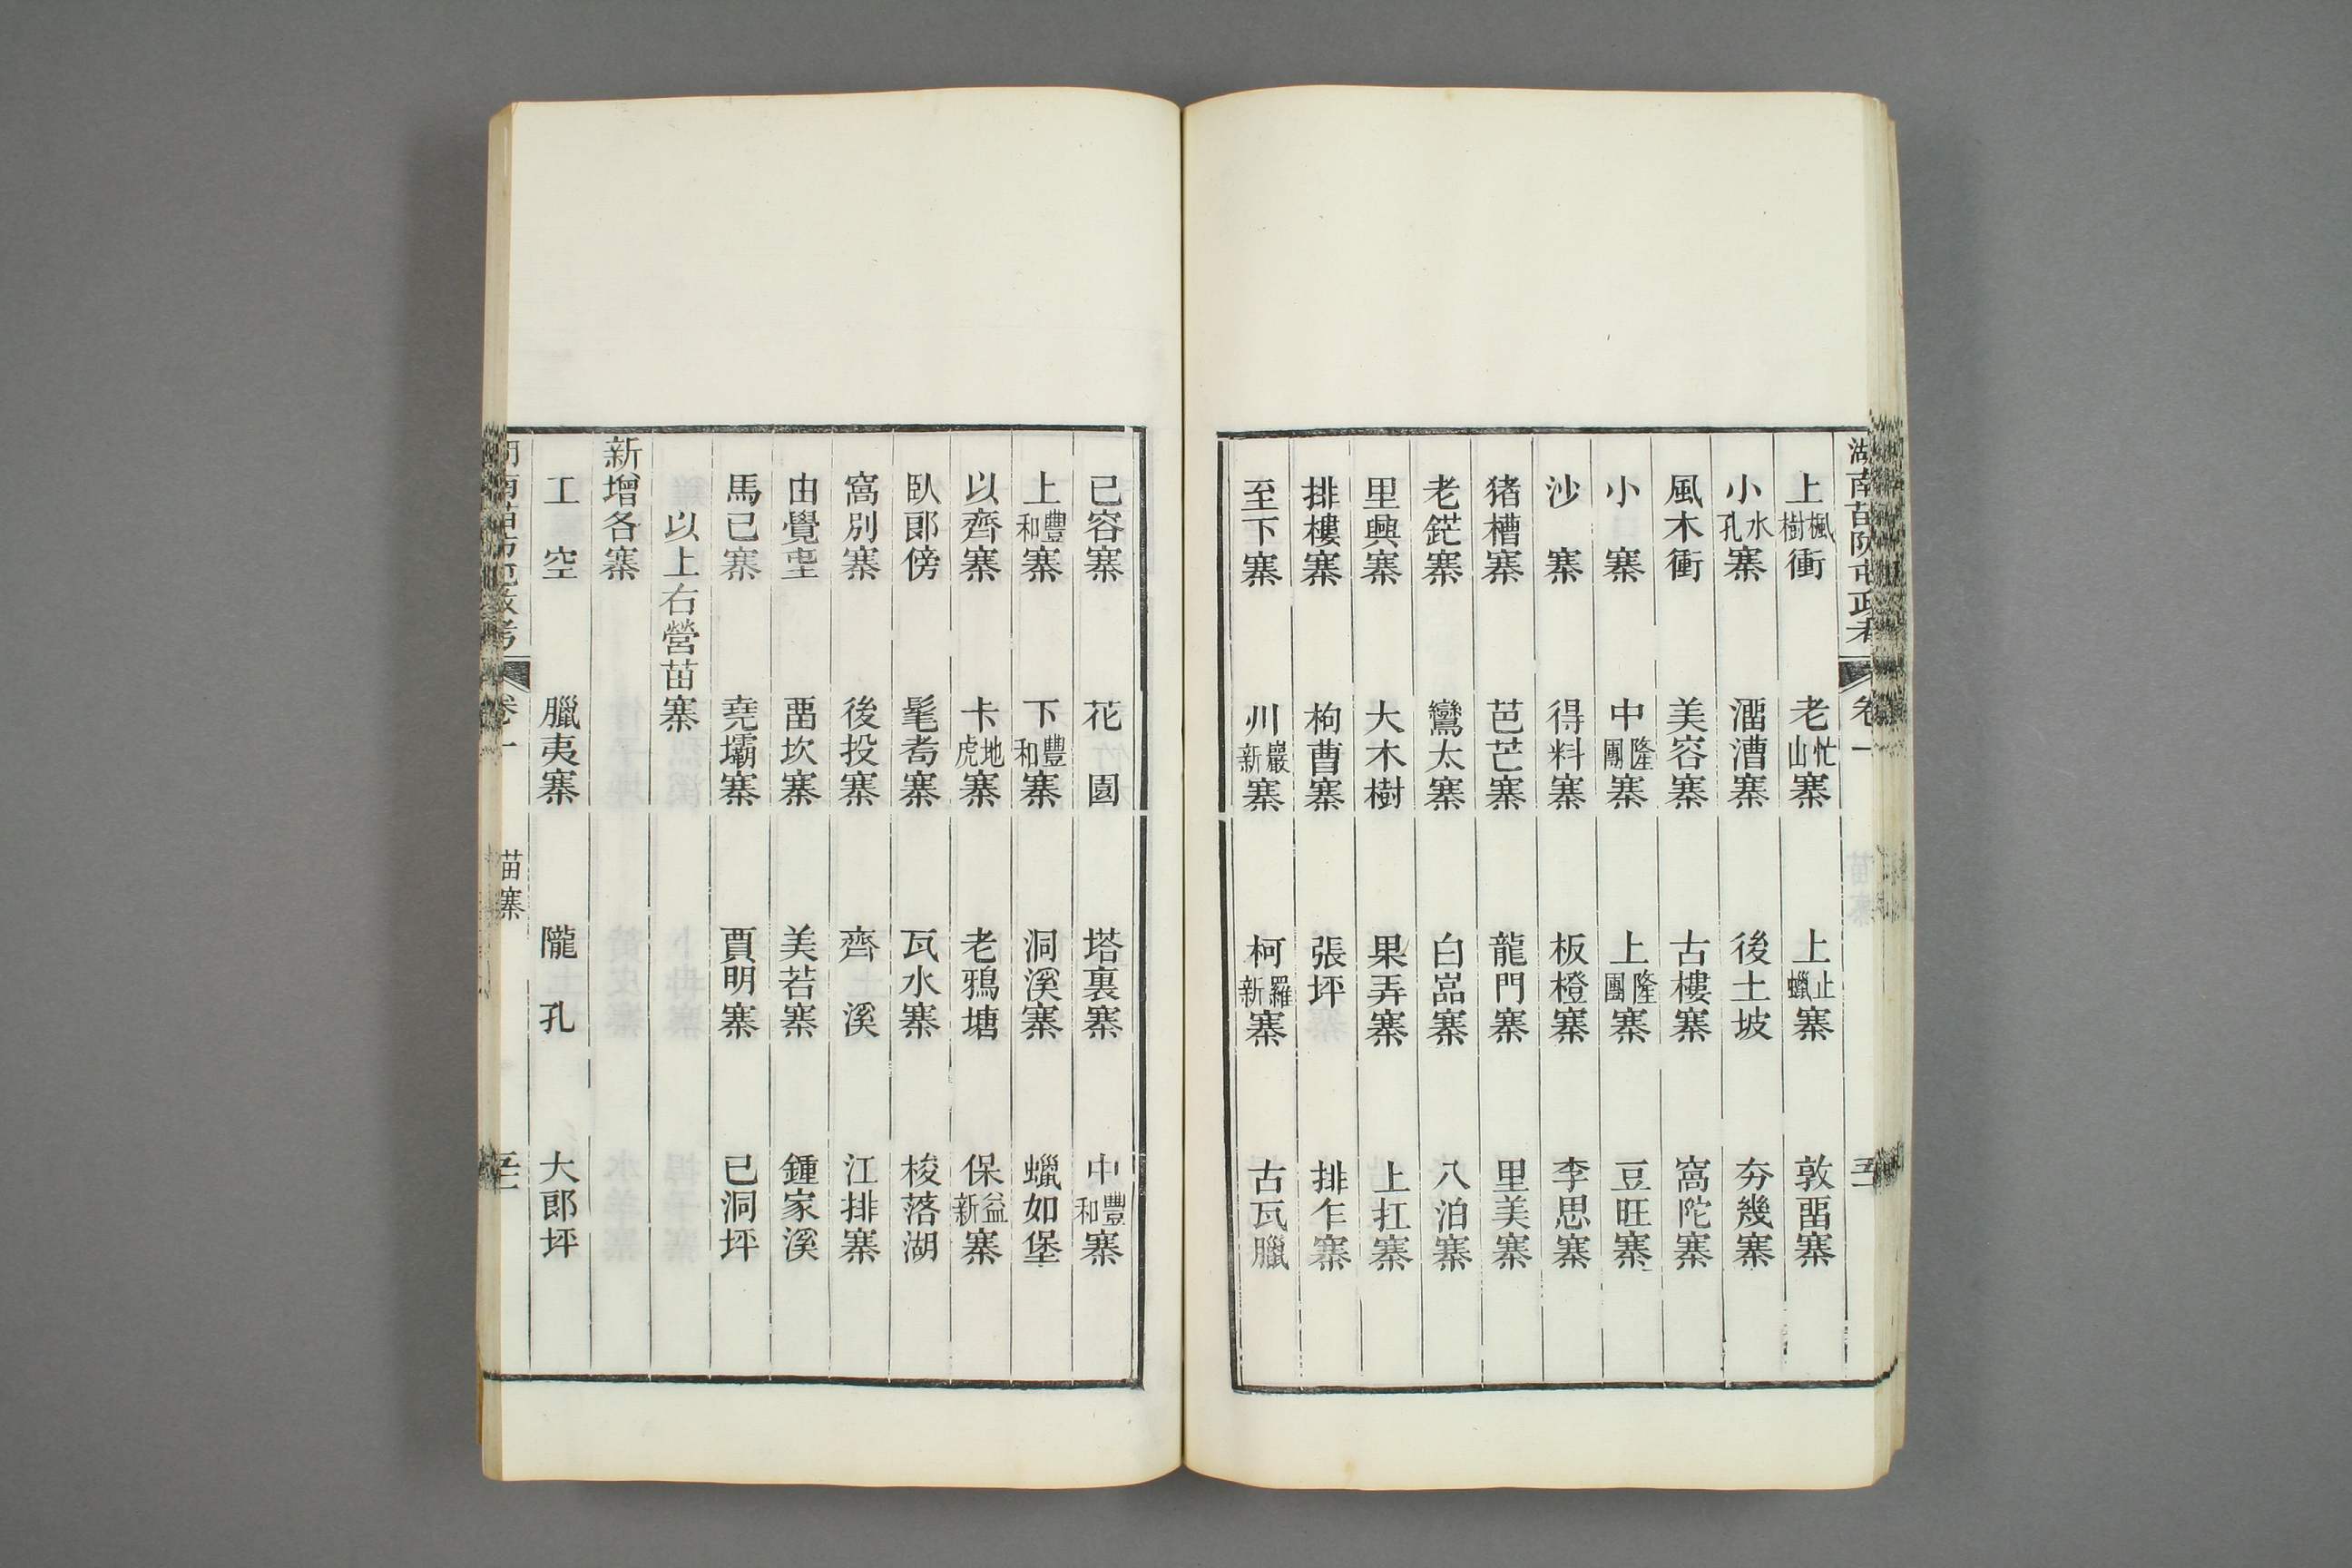 湖南苗防屯政考 卷一
上楓樹衝 老忙山寨 上止蠟寨 敦畱寨
小水孔寨 溜漕寨 後土坡 夯幾寨
風木衝 美容寨 古樓寨 窩陀寨
小寨 中隆團寨 上隆團寨 豆旺寨
沙寨 得料寨 板橙寨 李思寨
猪槽寨 芭芒寨 龍門寨 里美寨
老鋩寨 鸞太寨 白嵓寨 八泊寨
里興寨 大木樹 果弄寨 上扛寨
排樓寨 枸曹寨 張坪 排乍寨
至下寨 川巖新寨 柯羅新寨 古瓦臘
已容寨 花園 塔裏寨 中豐和寨
上豐和寨 下豐和寨 洞溪寨 蠟如堡
以齊寨 卡地虎寨 老鴉塘 保益新寨
臥郎傍 髦耇寨 瓦水寨 梭落湖
窩別寨 後投寨 齊溪 江排寨
由覺 畱坎寨 美若寨 鍾家溪
馬已寨 堯壩寨 賈明寨 已洞坪
以上右營苗寨
新增各寨
工空 臘夷寨 隴孔 大郎坪
湖南苗防屯政考 卷一 苗寨